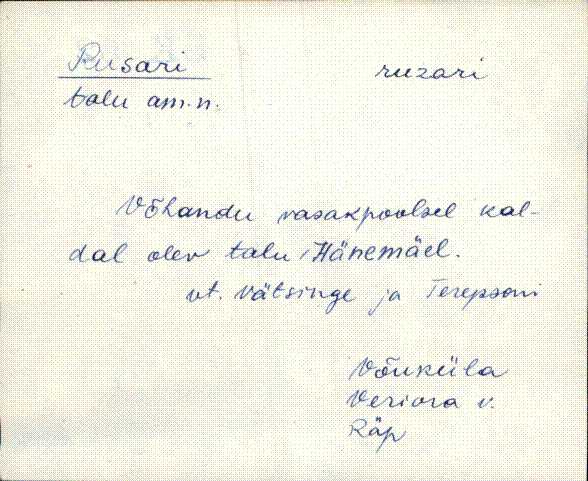 Rusari ruzari
talu am.n.
Võhandu vasakpoolsel kal-
dal olev talu Hänemäel.
vt. Vätsinge ja Terepsoni
Võuküla
Veriora v.
Räp